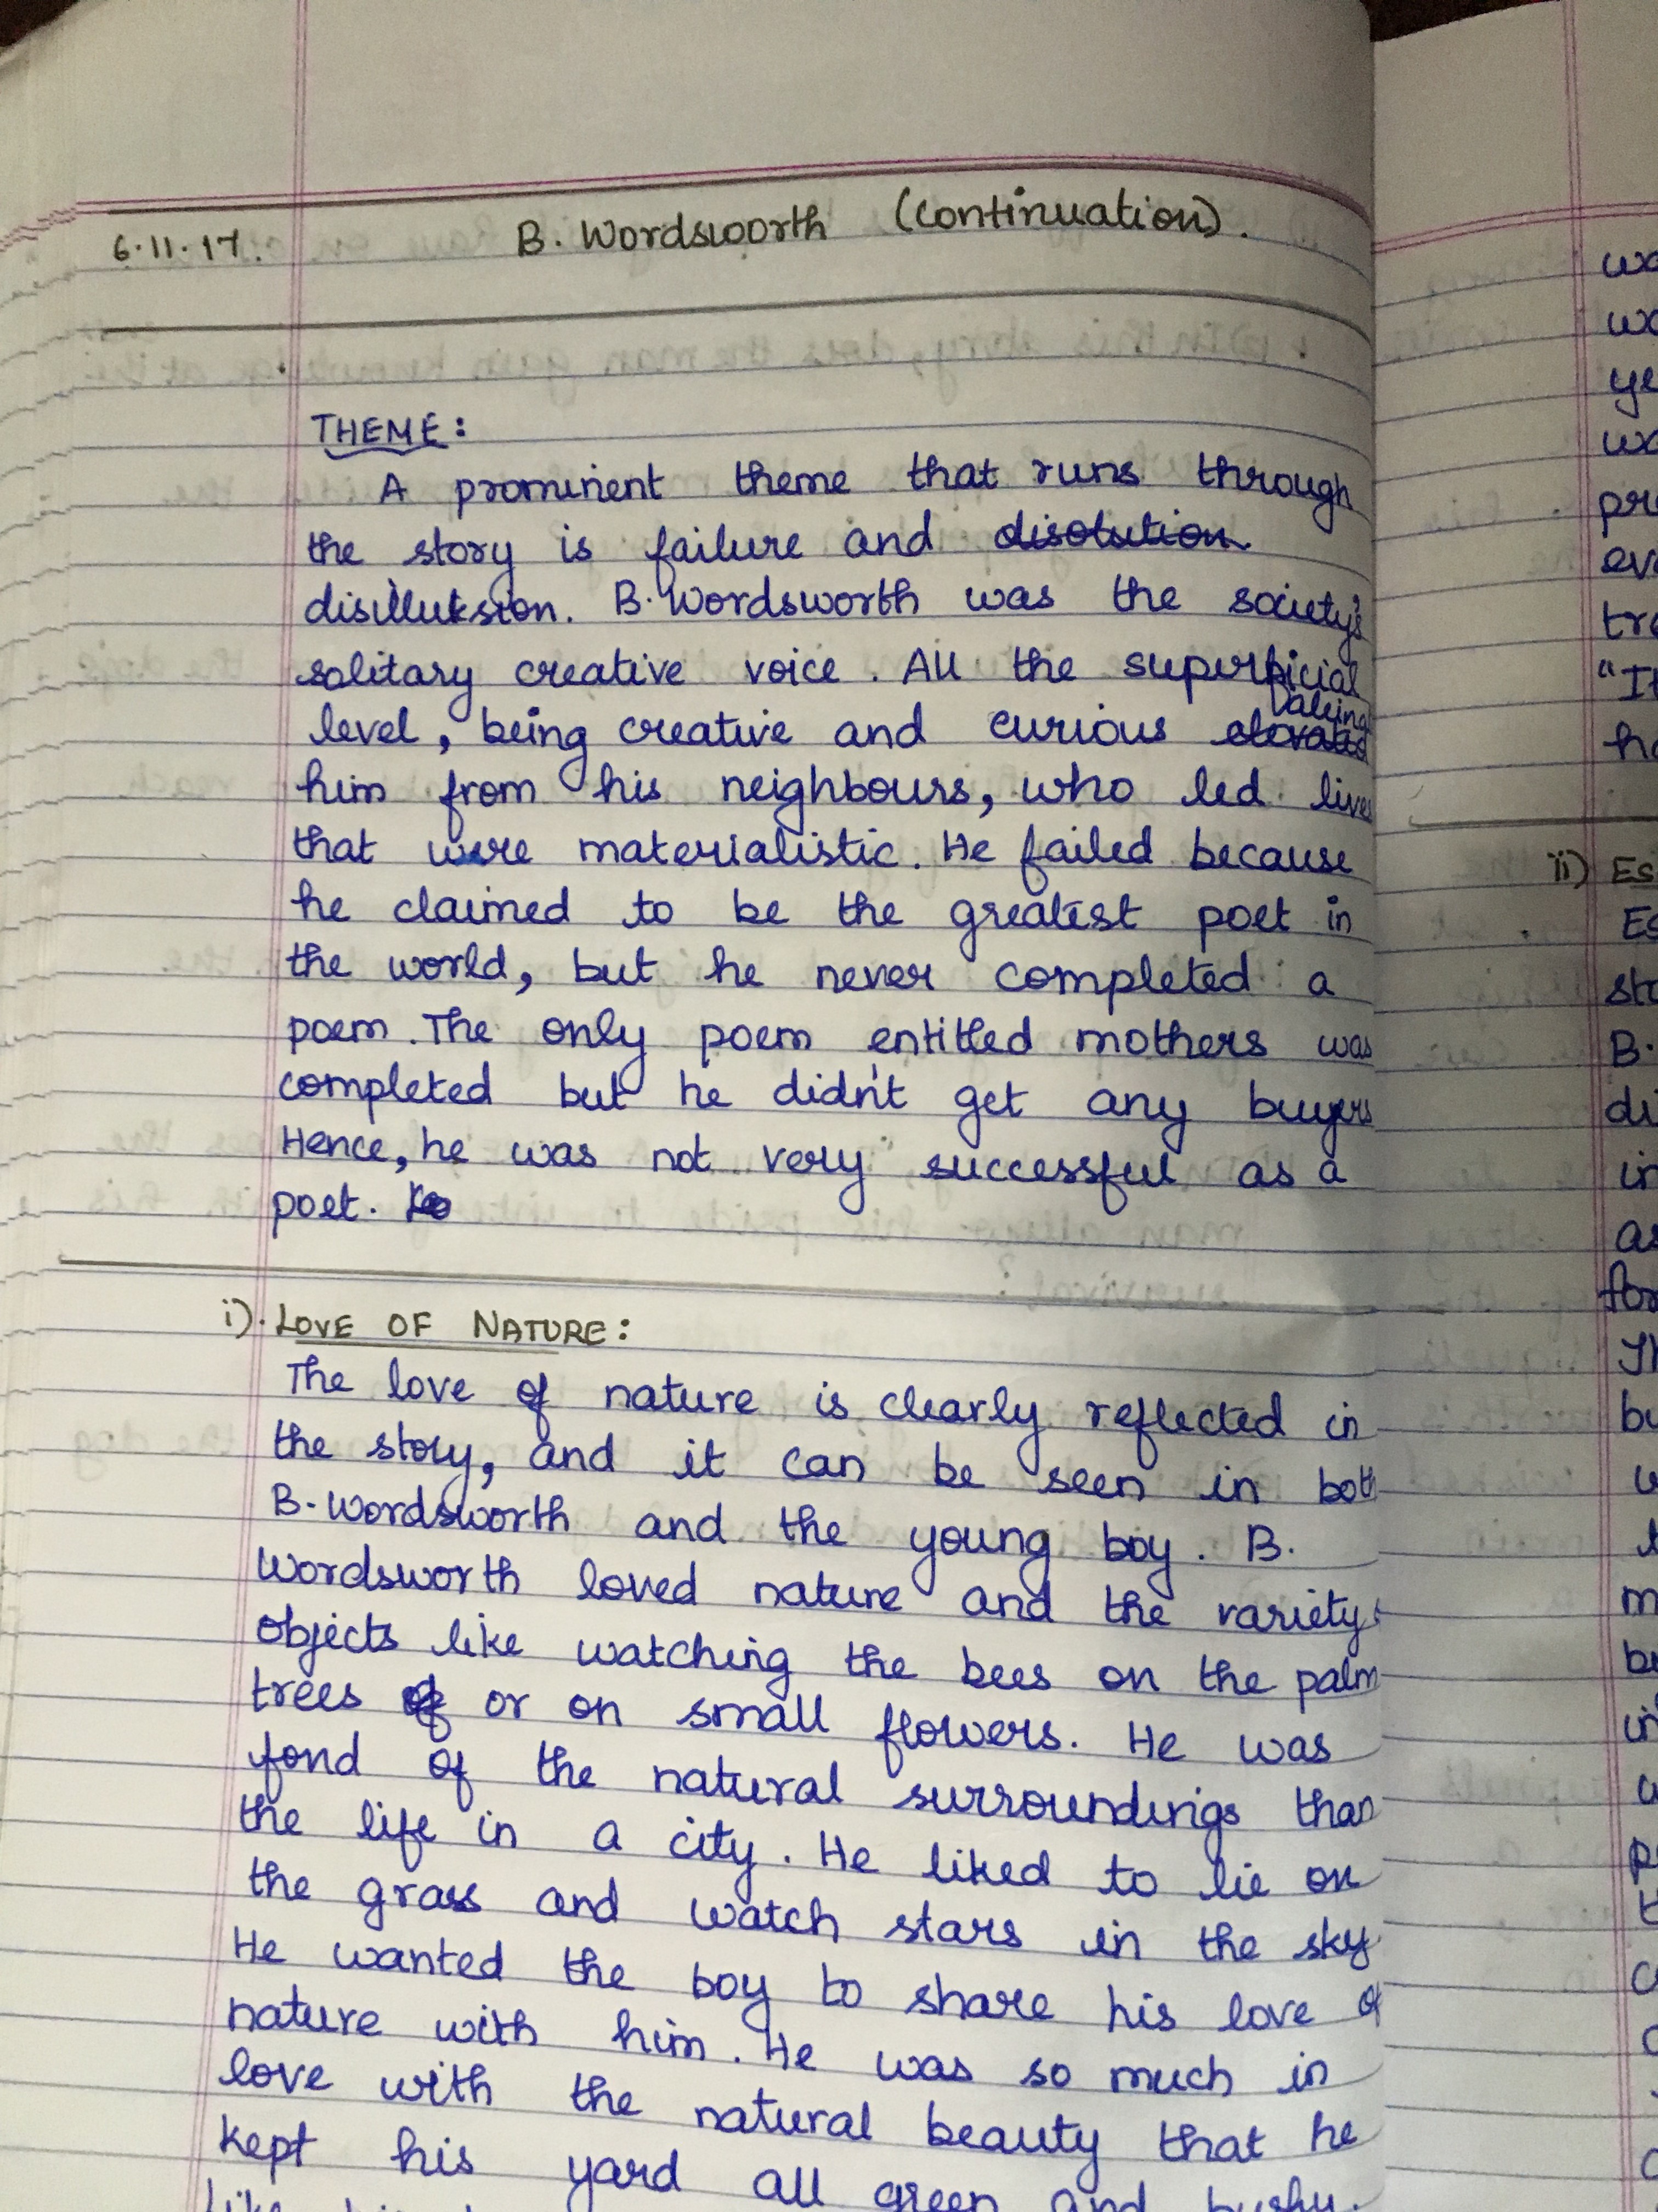 6.11.17. B. Wordsworth (Continuation).
THEME:
A prominent theme that runs through
the story is failure and disolution
disillukston. B. Wordsworth was the society's
solitary creative voice. All the superficial
level, being creative and curious
him from his neighbours, who led lives
that were materialistic. He failed because
he claimed to be the greatest poet in
the world, but he never completed a
poem. The only poem entitled mothers was
completed but he didn't get any buyers
Hence, he was not very successful as a
poet.
i). LOVE OF NATURE:
The love of nature is clearly reflected in
the story, and it can be seen in both
B. Wordsworth and the young boy. B.
Wordsworth loved nature and the variety
objects like watching the bees on the palm
trees or on small flowers. He was
fond of the natural surroundings than
the life in a city. He liked to lie on
the grass and watch stars in the sky
He wanted the boy to share his love of
nature with him. He was so much in
love with the natural beauty that he
kept his yard all green and bushy.
ii)
B.